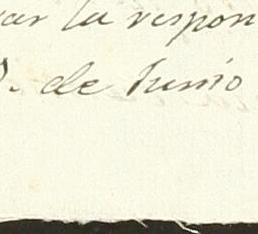 ar la respon
de Junio